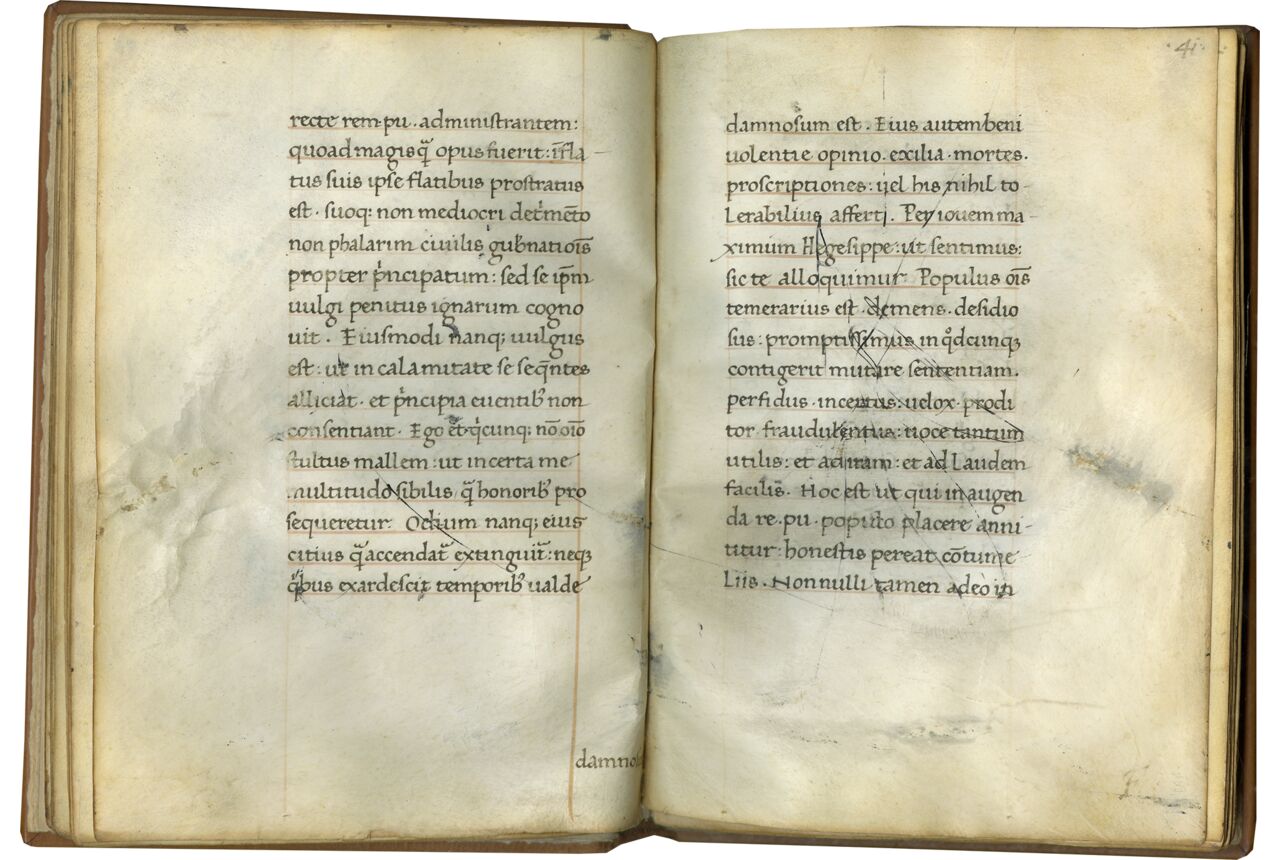 recte rem pu. administrantem:
quoad magisq̃ opus fuerit: ĩfla
tus suis ipse flatibus prostratus
est. suoq: non mediocri det̃mẽto
non phalarim ciuilis gub̃natiõis
propter p̃ncipatum: sed se ip̃m
uulgi penitus ignarum cogno
uit. Eiusmodi nanq; uulgus
est: ut in calamitate se seq̃ntes
alliciat. et p̃ncipia euentib᾽ non
consentiant. Ego et q̃cunq; nõ oĩo
stultus mallem: ut incerta me
multitudo sibilis q̃ honorib᾽ pro
sequeretur. Odium nanq; eius
citius q̃ accendat᷑ extinguit᷑: neq;
q̃bus exardescit temporib᾽ ualde
damno
41
damnosum est. Eius autem beni
uolentie opinio. exilia. mortes.
proscriptiones: uel his nihil to-
lerabilius afferti. Per iouem ma-
ximum Hegesippe: ut sentimus:
sic te alloquimur. Populus oĩs
temerarius est. demens. desidio
sus: promptissimus in q̊dcunq;
contigerit mutare sententiam.
perfidus. incertus: uelox. prodi
tor. fraudulentus: uoce tantum
utilis: et ad iram: et ad laudem
facilis. Hoc est ut qui in augen
da re. pu. populo placere anni-
titur: honestis pereat cõtume-
liis. Nonnulli tamen adeo in